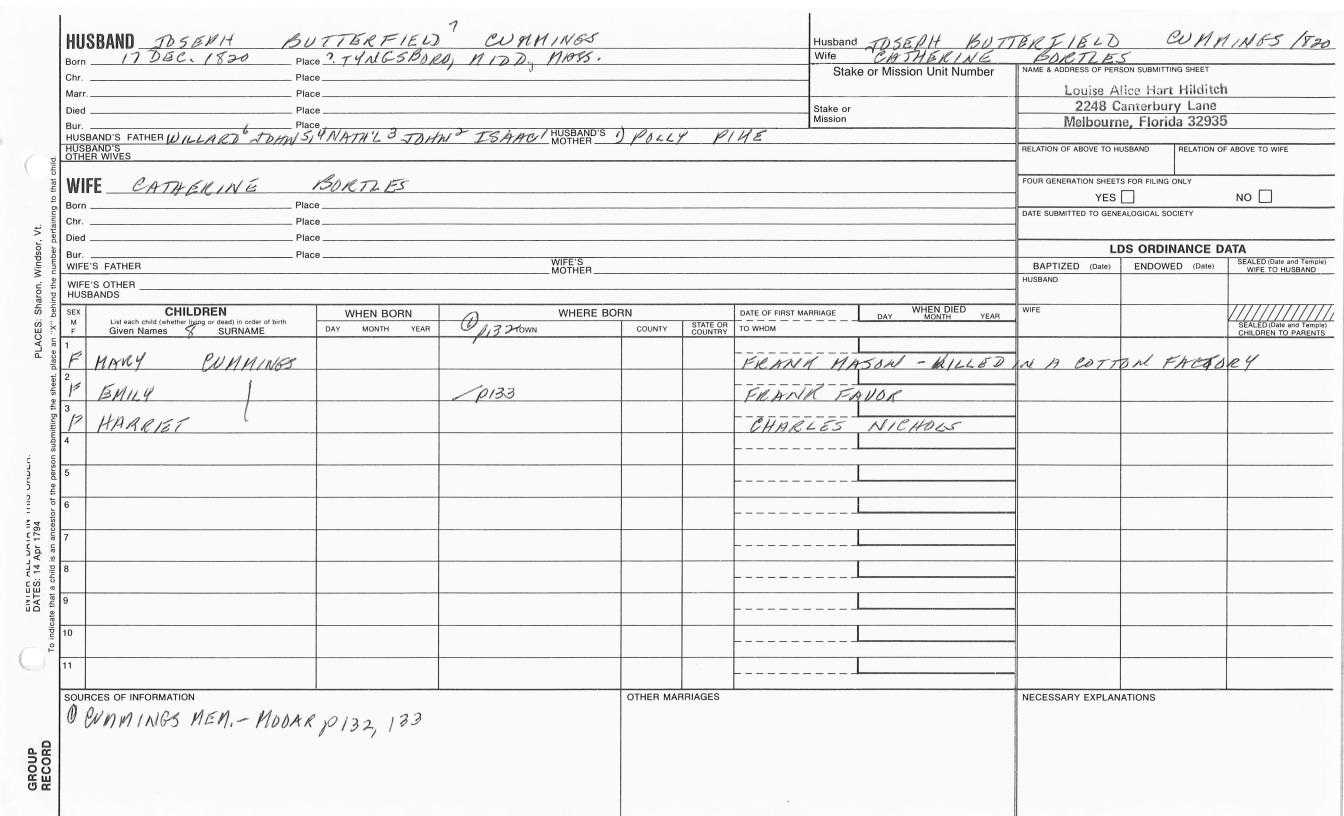 HUSBAND JOSEPH BUTTERFIELD 7 CUMMINGS
Born 17 DEC. 1820 Place ? TYNGSBORO, MIDD, MASS.
Chr. Place
Marr. Place
Died Place
Bur. Place
HUSBAND'S FATHER WILLARD 6 JOHN 5, 4 NATH'L 3 JOHN 2 ISAAC 1 HUSBAND'S MOTHER 1) POLLY
HUSBAND'S OTHER WIVES
Husband JOSEPH BUTTERFIELD CUMMINGS 1820
Wife CATHERINE BORTLES
Stake or Mission Unit Number
Stake or Mission
NAME & ADDRESS OF PERSON SUBMITTING SHEET
Louise Alice Hart Hilditch
2248 Canterbury Lane
Melbourne, Florida 32935
RELATION OF ABOVE TO HUSBAND RELATION OF ABOVE TO WIFE
FOUR GENERATION SHEETS FOR FILING ONLY
YES NO
DATE SUBMITTED TO GENEALOGICAL SOCIETY
WIFE CATHERINE BORTLES
Born Place
Chr. Place
Died Place
Bur. Place
WIFE'S FATHER WIFE'S MOTHER
WIFE'S OTHER HUSBANDS
LDS ORDINANCE DATA
BAPTIZED (Date) ENDOWED (Date) SEALED (Date and Temple) WIFE TO HUSBAND
HUSBAND
WIFE
SEALED (Date and Temple) CHILDREN TO PARENTS
SEX M F
CHILDREN
List each child (whether living or dead) in order of birth
Given Names 8 SURNAME
WHEN BORN
DAY MONTH YEAR
WHERE BORN
① p132 TOWN COUNTY STATE OR COUNTRY
DATE OF FIRST MARRIAGE
TO WHOM
WHEN DIED
DAY MONTH YEAR
1 F MARY CUMMINGS FRANK MASON - KILLED IN A COTTON FACTORY
2 F EMILY p133 FRANK FAVOR
3 F HARRIET CHARLES NICHOLS
4
5
6
7
8
9
10
11
SOURCES OF INFORMATION
① CUMMINGS MEM. - MOOAR p132, 133
OTHER MARRIAGES
NECESSARY EXPLANATIONS
PLACES: Sharon, Windsor, Vt.
ENTER ALL DATA IN THIS ORDER:
DATES: 14 Apr 1794
To indicate that a child is an ancestor of the person submitting the sheet, place an "X" behind the number pertaining to that child.
GROUP RECORD